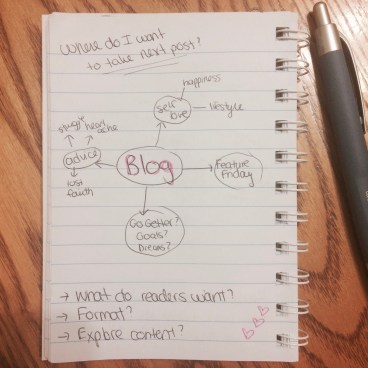 Where do I want
to take next post?
happiness
self
love
lifestyle
struggle
heart
ache
aduce
lost
faith
Blog
Feature
Friday
Go Getter?
Goals?
Dreams?
→ What do readers want?
→ Format?
→ Explore content?